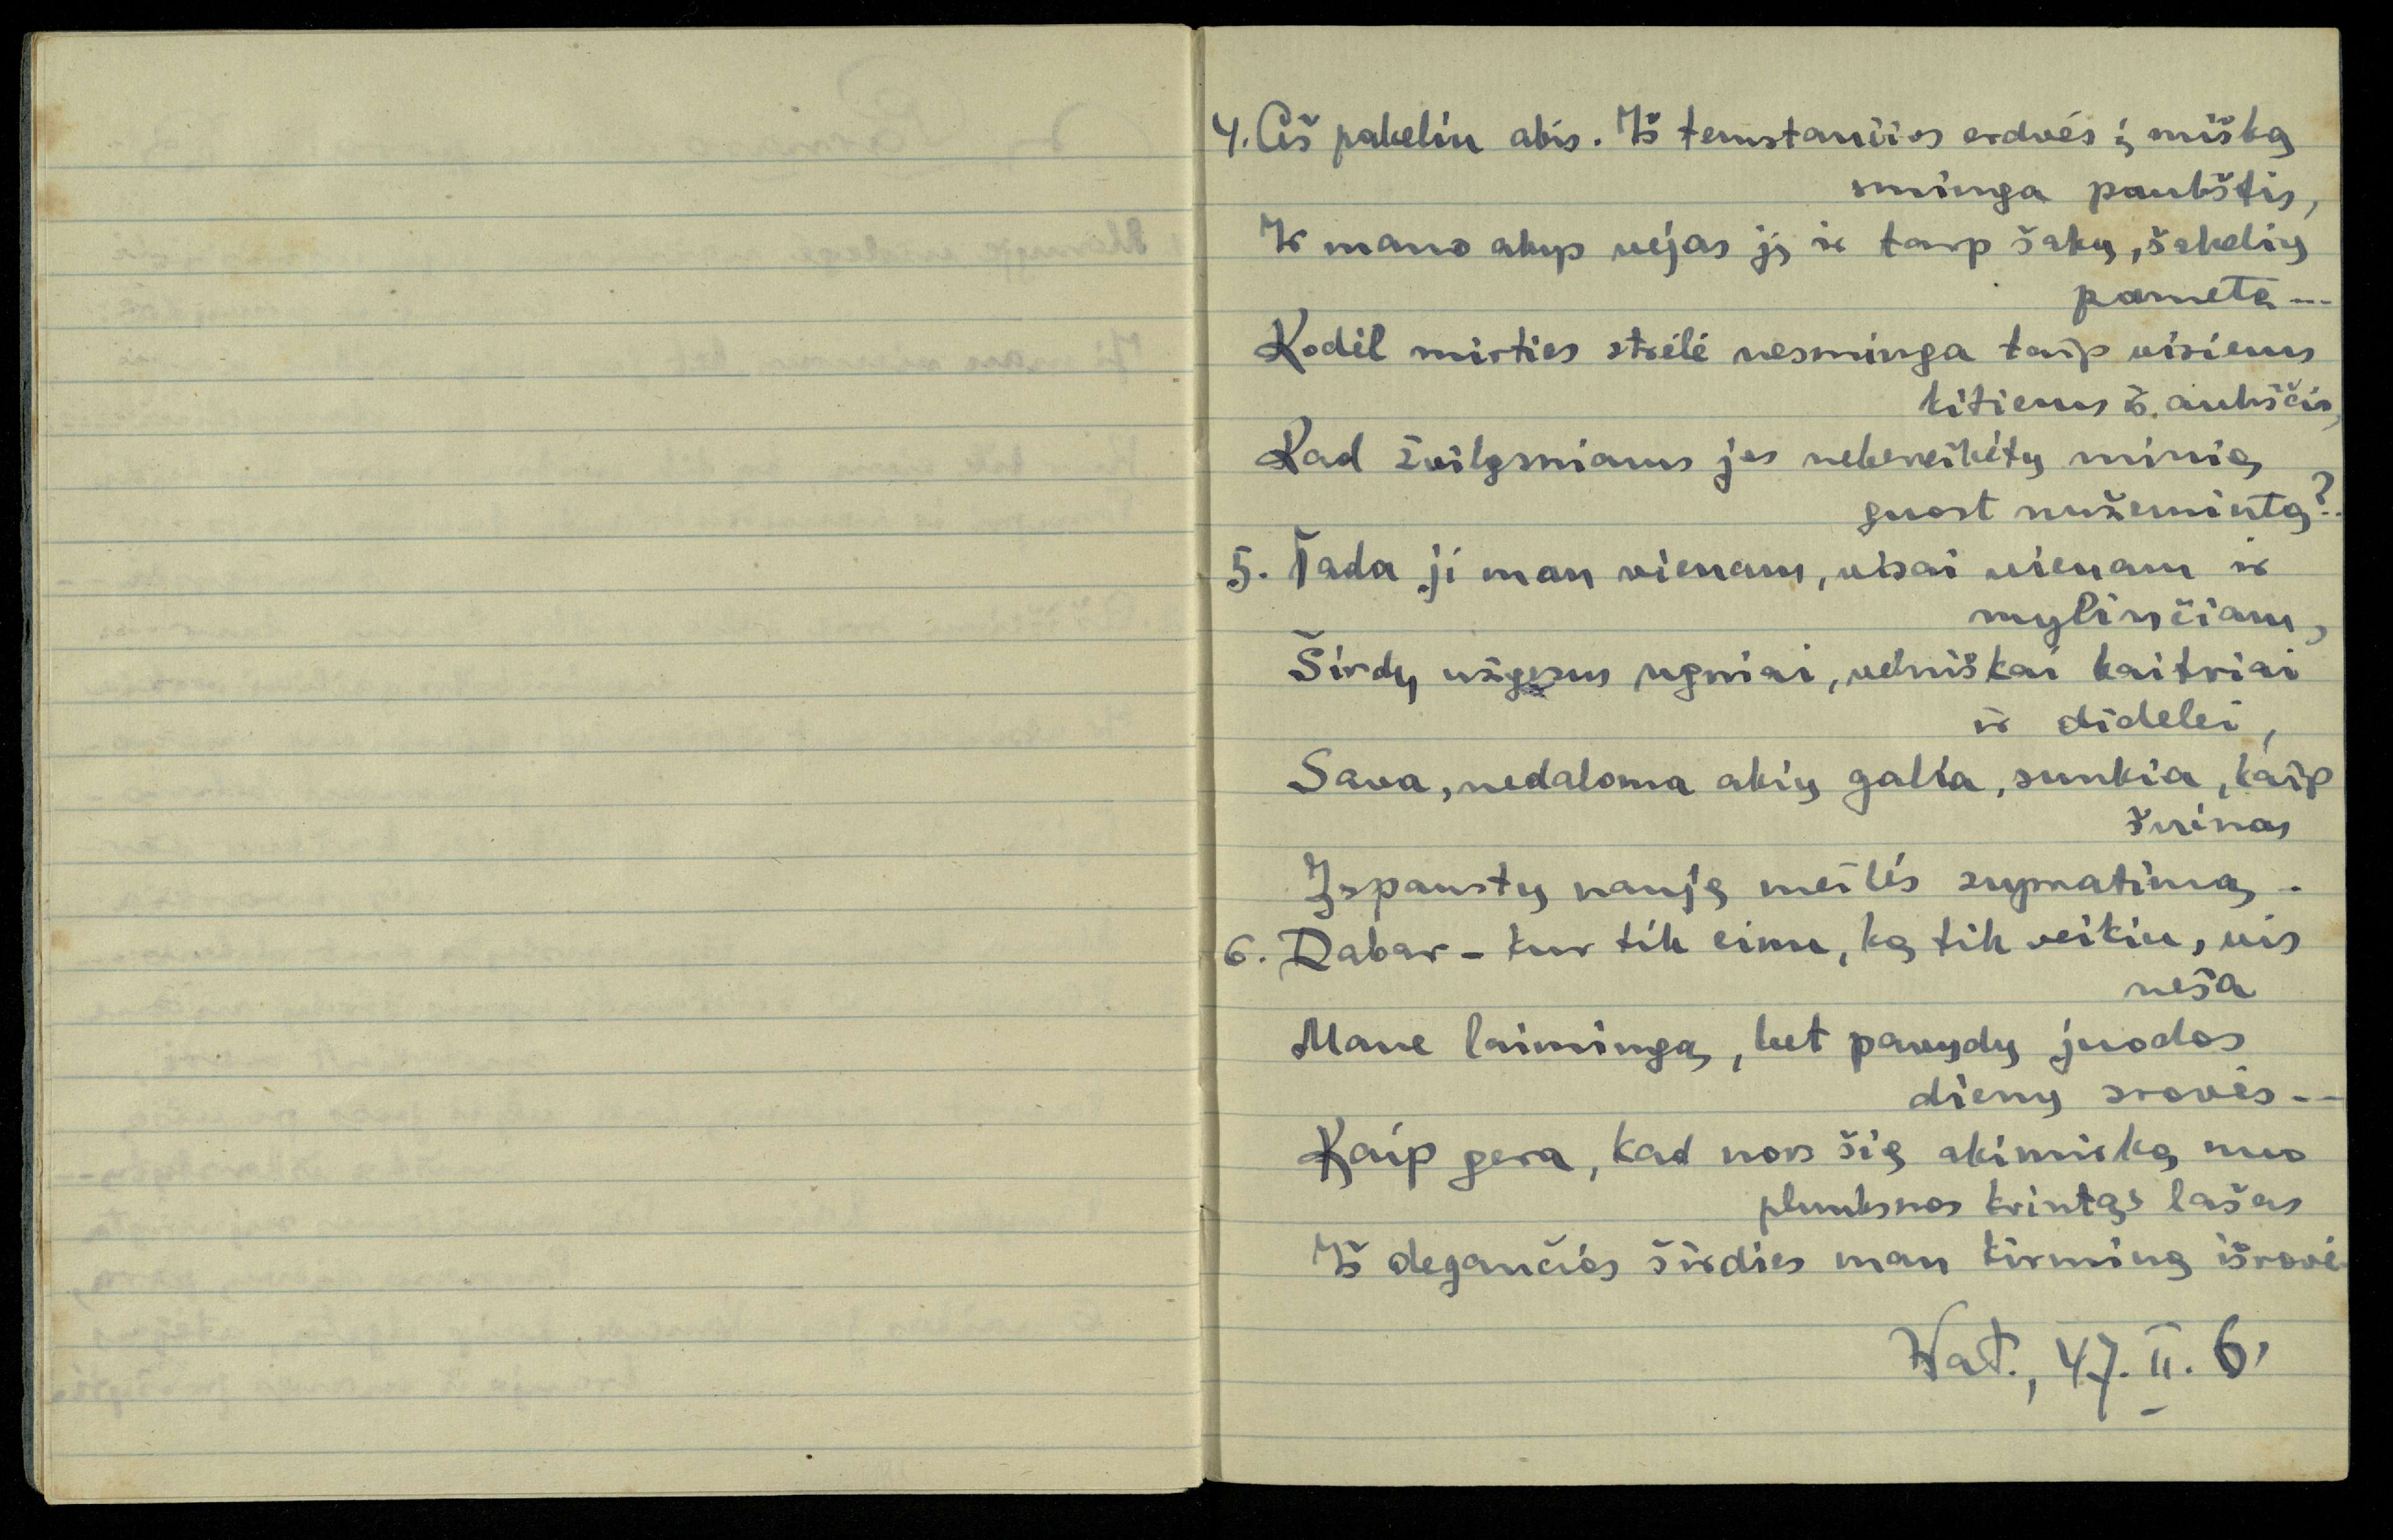 4. Aš pakeliu akis. Iš temstančios erdvės į mišką
sminga paukštis,
Ir mano akys vejas jį ir tarp šakų, šakelių
pameta ---
Kodėl mirties strėlė nesminga taip visiems
kitiems iš aukščio,
Kad žvilgsniams jos nebereikėtų minią
guost nužemintą?..
5. Tada ji man vienam, visai vienam ir
mylinčiam,
Širdų užgesus ugniai, velniškai kaitriai
ir didelei,
Sava, nedaloma akių galia, sunkia, kaip
švinas
Įspaustų naują meilės supratimą.
6. Dabar – kur tik einu, ką tik veikiu, vis
neša
Mane laimingą, bet pavydų juodos
dienų srovės --
Kaip gera, kad nors šią akimirką nuo
plunksnos krintąs lašas
Iš degančios širdies man kirminą išrovė.
Wat., 47. II. 6.